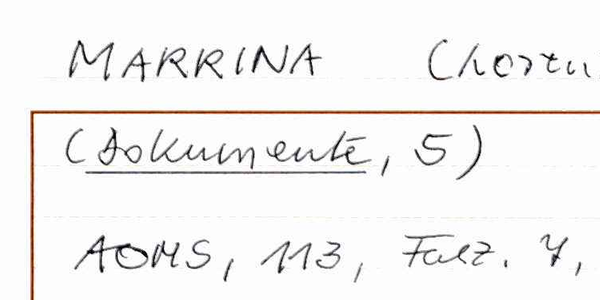 MARRINA
(Dokumente, 5)
AOMS, 113, Fasz. 7,